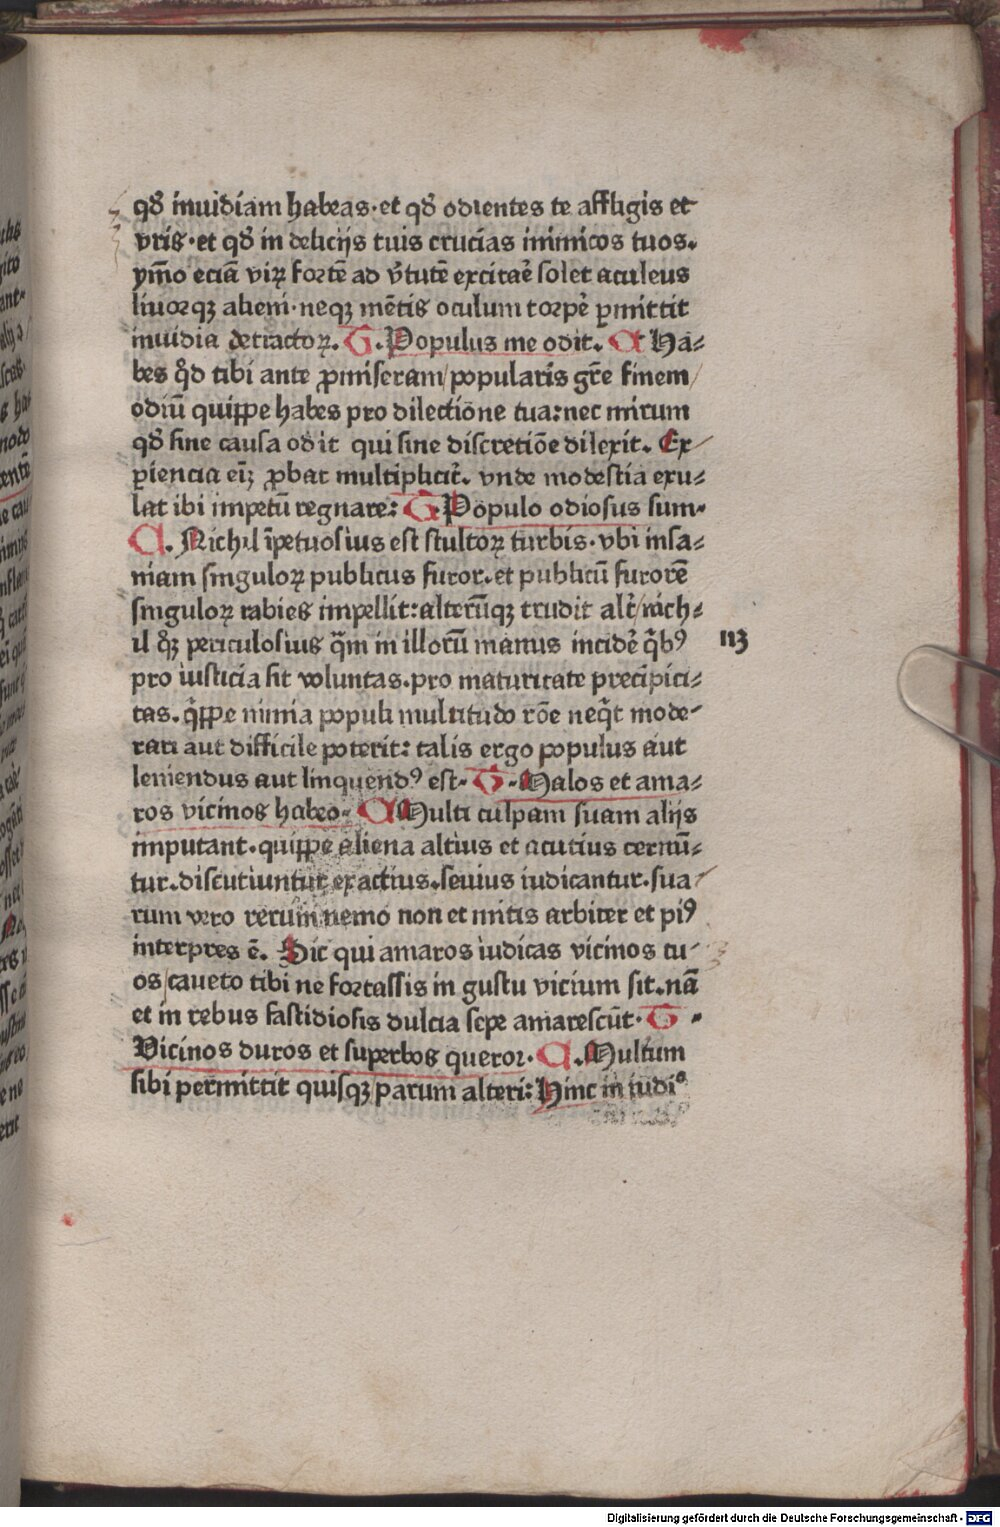 qđ inuidiam habeas·et qđ odientes te affligis et
vris·et qđ in delicijs tuis crucias inimicos tuos.
ymo̅ eciā viꝝ fortē ad v̓tutē excitae̅ solet aculeus
liuorqꝫ alieni·neqꝫ mētis oculum torpe̅ ꝑmittit
inuidia detractoꝝ. G. Populus me odit. A Ha⸗
bes qd̓ tibi ante ꝓmiseram/popularis gr̄e finem/
odiū quiꝑpe habes pro dilectione tua:nec mirum
qđ sine causa odit qui sine discretiōe dilexit. Ex⸗
ꝑiencia eīꝫ ꝓbat multiplicit̄. vnde modestia exu⸗
lat ibi impetū regnare: G Populo odiosus sum.
A. Nichil īpetuosius est stultoꝝ turbis·vbi insa⸗
niam singuloꝝ publicus furor.et publicū furorē
singuloꝝ rabies impellit:alterūqꝫ trudit alt̄/nich⸗
il qꝫ periculosius q̄m in illorū manus incide̅ q̄bꝰ
pro iusticia sit voluntas.pro maturitate precīpici⸗
tas.q̄ꝑpe nimia populi multitudo rōe neq̄t mode⸗
rari aut difficile poterit: talis ergo populus aut
leniendus aut linquendꝰ est. G. Malos et ama⸗
ros vicinos habeo. A Multi culpam suam alijs
imputant.quiꝑpe aliena altius et acutius cernū⸗
tur.discutiuntur exactius.seuius iudicantur.sua⸗
rum vero rerum nemo non et mitis arbiter et piꝰ
interpres ē. Sic qui amaros iudicas vicinos tu⸗
os/caueto tibi ne fortassis in gustu vicium sit.nā
et in rebus fastidiosis dulcia sepe amarescūt. G.
Vicinos duros et superbos queror. A. Multum
sibi permittit quisqꝫ/parum alteri: Hinc in iudi⸗
113
Digitalisierung gefördert durch die Deutsche Forschungsgemeinschaft - DFG